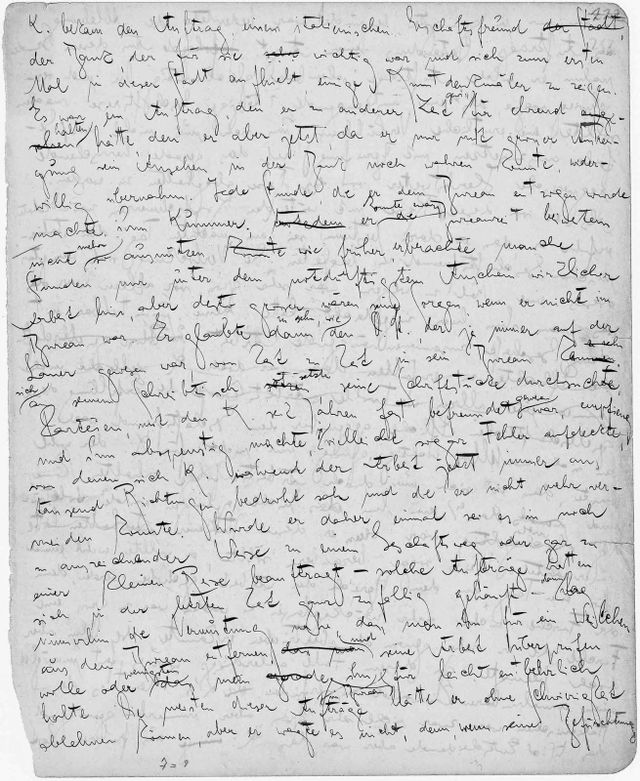 K. bekam den Auftrag, einem italienischen Geschäftsfreund der Stadt,
der Bank der für sie die wichtig war und sich zum ersten
Mal in dieser Stadt aufhielt einige Kunstdenkmäler zu zeigen.
Es war ein Auftrag, den er zu anderer Zeit gewiss für ehrend
hätte den er aber jetzt, da er nur mit grosser Anstren-
gung sein Ansehen in der Bank noch wahren konnte, wider-
willig übernahm. Jede Stunde, die er dem Bureau entzogen wurde
machte ihm Kummer; er konnte zwar die Bureauzeit bei weitem
nicht mehr so ausnützen konnte wie früher, er brachte manche
Stunden nur unter dem notdürftigsten Anschein wirklicher
Arbeit hin, aber desto grösser waren seine Sorgen, wenn er nicht im
Bureau war. Er glaubte dann zu sehn, wie der D. St., der ja immer auf der
Lauer gewesen war, von Zeit zu Zeit in sein Bureau kam,
sich an seinen Schreibtisch setzte, seine Schriftstücke durchsuchte,
Parteien, mit denen K. seit Jahren fast befreundet gewesen war, empfieng
und ihm abspenstig machte, vielleicht sogar Fehler aufdeckte,
von denen sich K. während der Arbeit jetzt immer aus
tausend Richtungen bedroht sah und die er nicht mehr ver-
meiden konnte. Wurde er daher einmal sei es in noch
so auszeichnender Weise zu einem Geschäftsweg oder gar zu
einer kleinen Reise beauftragt – solche Aufträge hatten
sich in der letzten Zeit ganz zufällig gehäuft – dann lag
immerhin die Vermutung nahe, dass man ihn für ein Weilchen
aus dem Bureau entfernen und seine Arbeit überprüfen
wolle oder wenigstens man ihn im Bureau für leicht entbehrlich
halte. Die meisten dieser Aufträge hätte er ohne Schwierigkeit
ablehnen können, aber er wagte es nicht, denn wenn seine Befürchtung